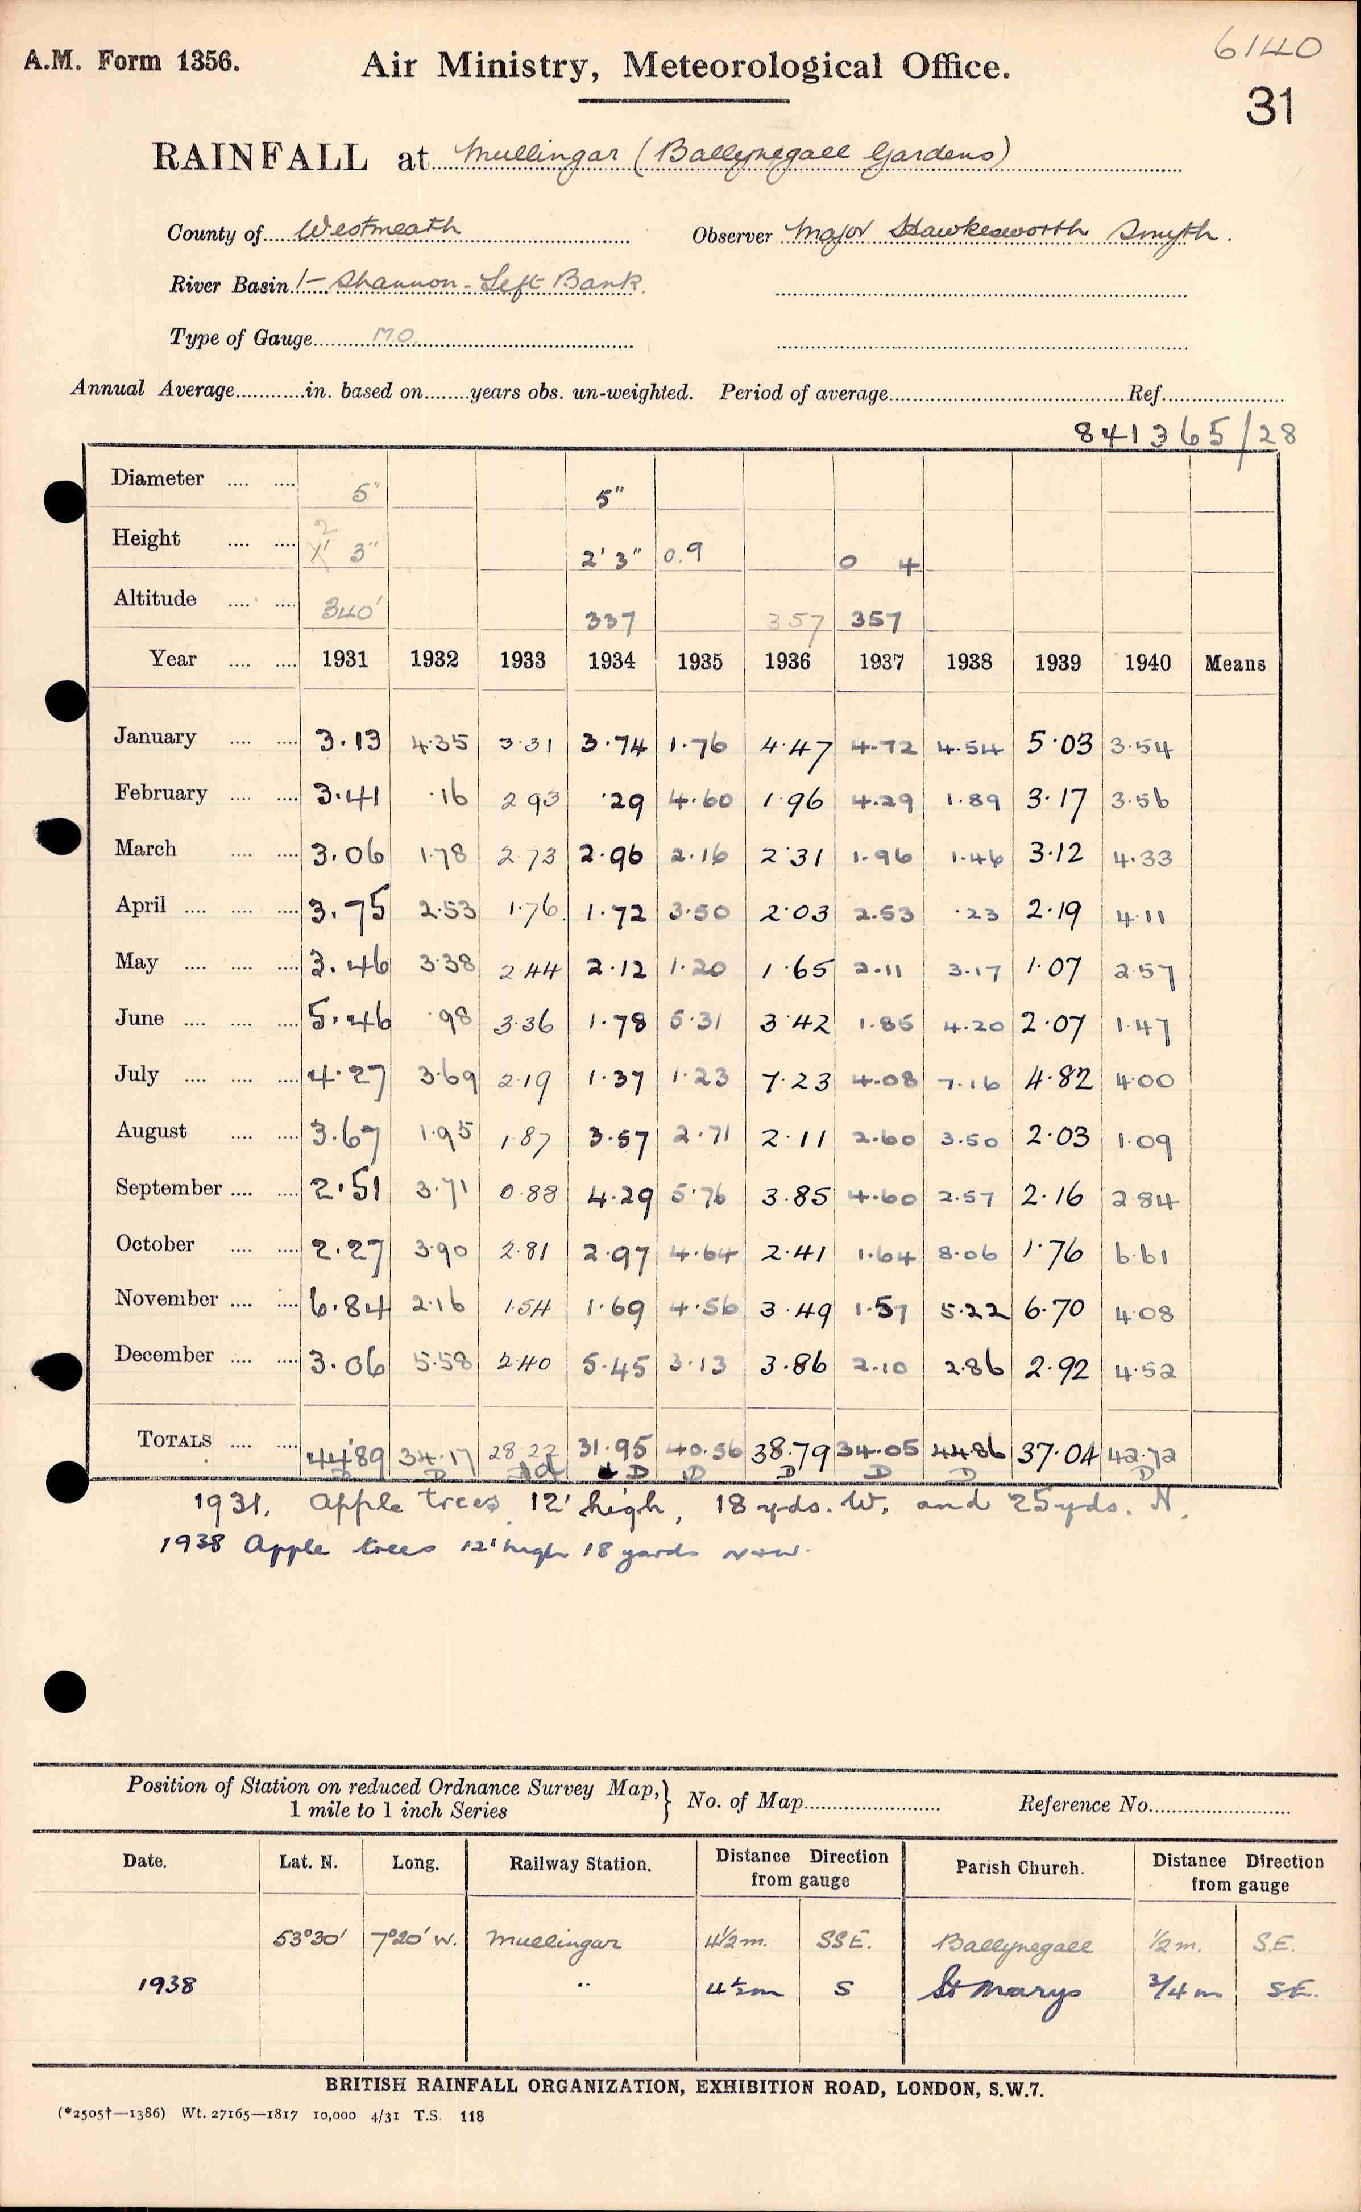 6140
A.M. Form 1356. Air Ministry, Meteorological Office.
31
RAINFALL at Mullingar (Ballynegall Gardens)
County of Westmeath Observer Major Hawkesworth Smyth.
River Basin 1- Shannon - Left Bank.
Type of Gauge M.O.
Annual Average in. based on years obs. un-weighted. Period of average Ref.
841365/28
Diameter 5" 5"
Height 2' 3" 2' 3" 0.9 0 4
Altitude 340' 337 357 357
Year 1931 1932 1933 1934 1935 1936 1937 1938 1939 1940 Means
January 3.13 4.35 3.31 3.74 1.76 4.47 4.72 4.54 5.03 3.54
February 3.41 .16 2.93 .29 4.60 1.96 4.29 1.89 3.17 3.56
March 3.06 1.78 2.73 2.96 2.16 2.31 1.96 1.46 3.12 4.33
April 3.75 2.53 1.76 1.72 3.50 2.03 2.53 .23 2.19 4.11
May 3.46 3.38 2.44 2.12 1.20 1.65 2.11 3.17 1.07 2.57
June 5.46 .98 3.36 1.78 5.31 3.42 1.85 4.20 2.07 1.47
July 4.27 3.69 2.19 1.37 1.23 7.23 4.08 7.16 4.82 4.00
August 3.67 1.95 1.87 3.57 2.71 2.11 2.60 3.50 2.03 1.09
September 2.51 3.71 0.88 4.29 5.76 3.85 4.60 2.57 2.16 2.84
October 2.27 3.90 2.81 2.97 4.64 2.41 1.64 8.06 1.76 6.61
November 6.84 2.16 1.54 1.69 4.56 3.49 1.57 5.22 6.70 4.08
December 3.06 5.58 2.40 5.45 3.13 3.86 2.10 2.86 2.92 4.52
TOTALS 44.89 34.17 28.22 31.95 40.56 38.79 34.05 44.86 37.04 42.72
D D D D D D D D
1931. Apple trees 12' high, 18 yds. W, and 25 yds. N.
1938 Apple trees 12' high 18 yards N & W.
Position of Station on reduced Ordnance Survey Map, 1 mile to 1 inch Series } No. of Map Reference No.
Date. Lat. N. Long. Railway Station. Distance Direction from gauge Parish Church. Distance Direction from gauge
53°30' 7°20' W. Mullingar 4½m. SSE. Ballynegall ½m. S.E.
1938 " 4½m S St Marys ¾m S.E.
BRITISH RAINFALL ORGANIZATION, EXHIBITION ROAD, LONDON, S.W.7.
(*2505†—1386) Wt. 27165—1817 10,000 4/31 T.S. 118